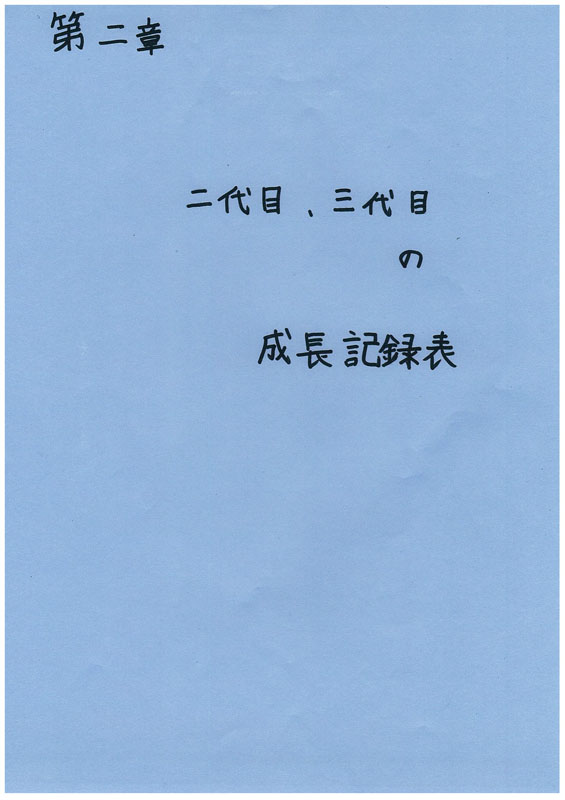 第二章
二代目、三代目
の
成長記録表